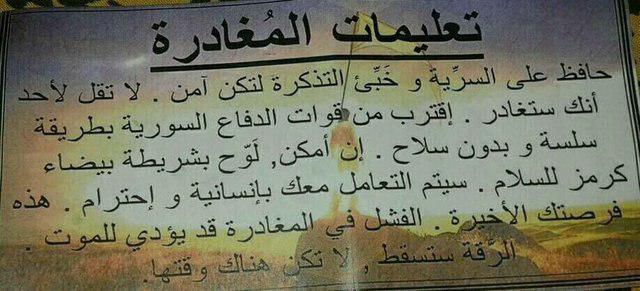 تعليمات المُغادرة
حافظ على السرِّية و خَبِّئ التذكرة لتكن آمن . لا تقل لأحد
أنك ستغادر . إقترب من قوات الدفاع السورية بطريقة
سلسة و بدون سلاح . إن أمكن, لَوّح بشريطة بيضاء
كرمز للسلام . سيتم التعامل معك بإنسانية و إحترام . هذه
فرصتك الأخيرة . الفشل في المغادرة قد يؤدي للموت .
الرَّقة ستسقط , لا تكن هناك وقتها.